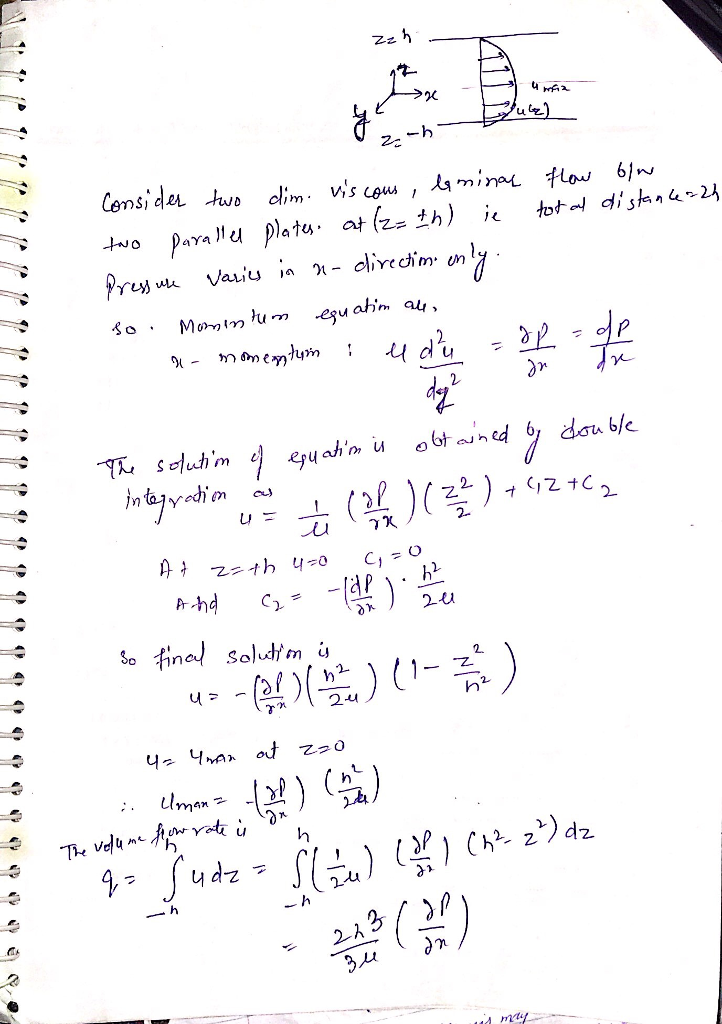 z=h
z
x
y
umax
u(z)
z=-h
Consider two dim. viscous, laminar flow b/w
two parallel plates. at (z= ±h) ie total distance=2h
Pressure varies in x-direction only.
so. Momentum equation are,
x- momentum : μ d²u/dy² = ∂p/∂x = dp/dx
The solution of equation is obtained by double
integration as
u = 1/μ (∂P/∂x)(z²/2) + C₁z + C₂
At z=+h u=0 C₁=0
And C₂ = -(dP/∂x) · h²/2μ
So final solution is
u = -(∂P/∂x)(h²/2μ)(1- z²/h²)
u= umax at z=0
∴ Umax = -(∂P/∂x) (h²/2μ)
The volume flow rate is
q = ∫₋ₕʰ u dz = ∫₋ₕʰ (1/2μ) (∂P/∂x) (h²- z²) dz
= 2h³/3μ (∂P/∂x)
may